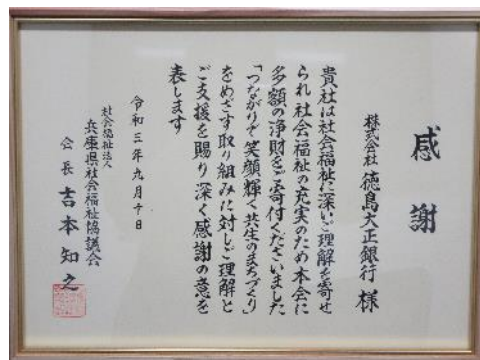 感謝
株式会社 徳島大正銀行 様
貴社は社会福祉に深いご理解を寄せ
られ社会福祉の充実のため本会に
多額の浄財をご寄付くださいました
「つながりで笑顔輝く共生のまちづくり」
をめざす取り組みに対しご理解と
ご支援を賜り深く感謝の意を
表します
令和三年九月十日
社会福祉法人
兵庫県社会福祉協議会
会長 吉本知之